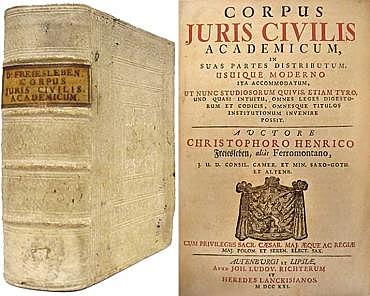 D. FREIESLEBEN
CORPUS
JURIS CIVILIS
ACADEMICUM.
CORPUS
JURIS CIVILIS
ACADEMICUM,
IN
SUAS PARTES DISTRIBUTUM,
USUIQUE MODERNO
ITA ACCOMMODATUM,
UT NUNC STUDIOSORUM QUIVIS, ETIAM TYRO,
UNO QUASI INTUITU, OMNES LEGES DIGESTO-
RUM ET CODICIS, OMNESQUE TITULOS
INSTITUTIONUM INVENIRE
POSSIT.
AUCTORE
CHRISTOPHORO HENRICO
Freiesleben, aliàs Ferromontano,
J. U. D. CONSIL. CAMER. ET MIN. SAXO-GOTH.
ET ALTENB.
CUM PRIVILEGIIS SACR. CÆSAR. MAJ. ÆQUE AC REGIÆ
MAJ. POLON. ET SEREN. ELECT. SAX.
ALTENBURGI ET LIPSIÆ,
APUD JOH. LUDOV. RICHTERUM
ET
HEREDES LANCKISIANOS.
M DCC XXI.